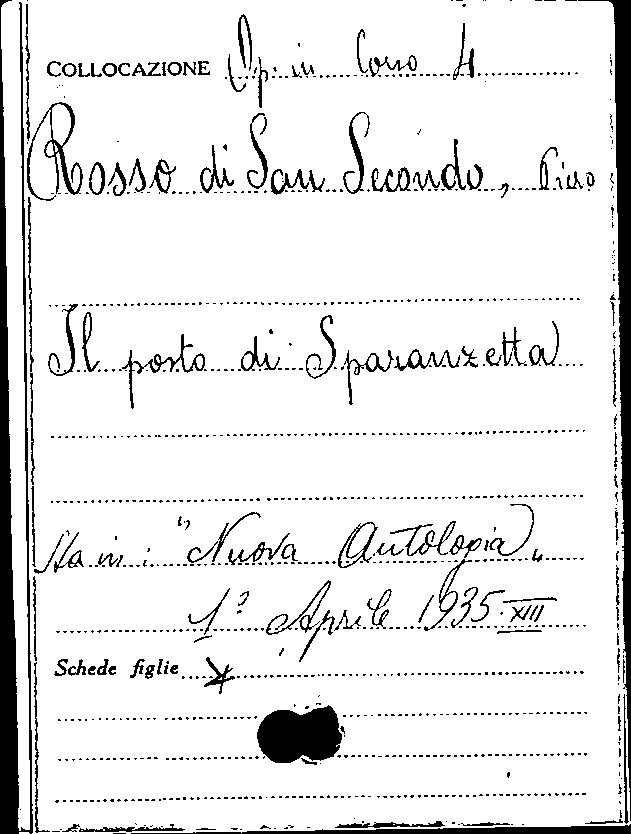 COLLOCAZIONE Op. in Corso 4
Rosso di San Secondo, Piero
Il posto di Sparanzetta
Sta in: "Nuova Antologia„
1° Aprile 1935-XIII
Schede figlie